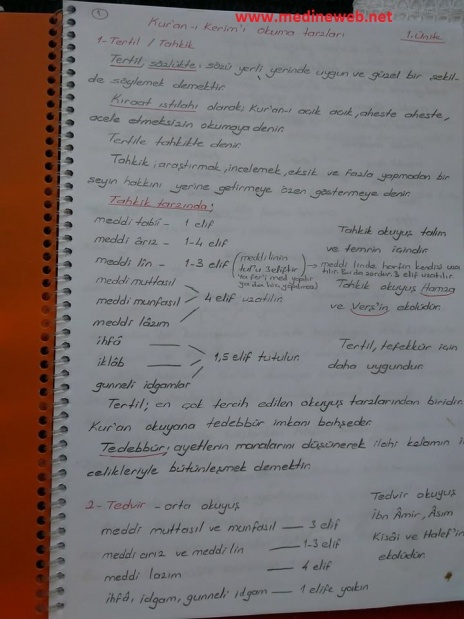 www.medineweb.net
1
Kur'an-ı Kerim'i okuma tarzları
1. Ünite
1- Tertil / Tahkik
Tertil, sözlükte; sözü yerli yerinde uygun ve güzel bir şekil-
de söylemek demektir.
Kıraat ıstılahı olarak; Kur'an-ı açık açık, aheste aheste,
acele etmeksizin okumaya denir.
Tertile tahkikte denir.
Tahkik; araştırmak, incelemek, eksik ve fazla yapmadan bir
şeyin hakkını yerine getirmeye özen göstermeye denir.
Tahkik tarzında;
meddi tabii - 1 elif
meddi ârız - 1-4 elif
meddi lîn - 1-3 elif
(meddi linin
tulu 3 eliftir
→ medd-i linde harfin kendisi uza
meddi muttasıl
meddi munfasıl > 4 elif uzatılır.
meddi lâzım
Tahkik okuyuş talim
ve temrin içindir
Tahkik okuyuş Hamza
ve Verş'in ekolüdür.
ihfâ
iklâb > 1,5 elif tutulur.
gunneli idgamlar
Tertil, tefekkür için
daha uygundur.
Tertil; en çok tercih edilen okuyuş tarzlarından biridir.
Kur'an okuyana tedebbür imkanı bahşeder.
Tedebbür; ayetlerin manalarını düşünerek ilahi kelamın i
celikleriyle bütünleşmek demektir.
2- Tedvir - orta okuyuş
meddi muttasıl ve munfasıl — 3 elif
meddi arız ve meddi lin — 1-3 elif
meddi lazım — 4 elif
ihfâ, idgam, gunneli idgam — 1 elife yakın
Tedvir okuyuş
İbn Âmir, Âsım
Kisâi ve Halef'in
ekolüdür.